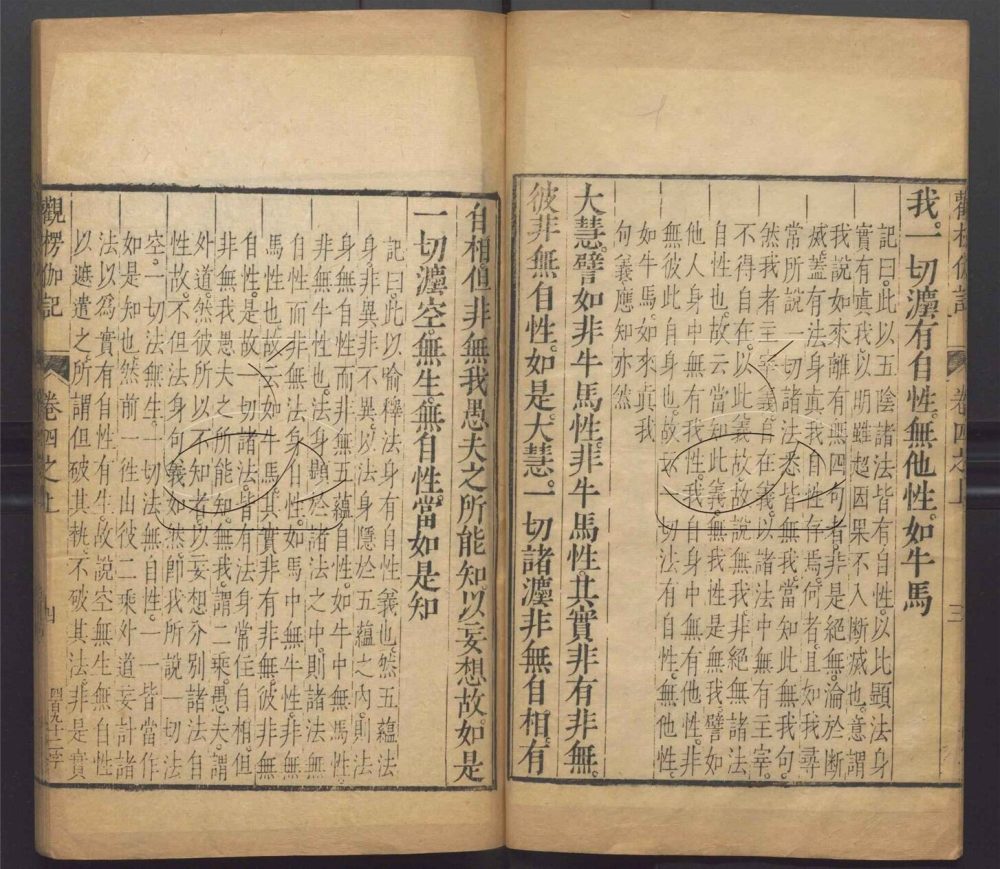 觀楞伽記 卷四之上 三
我。一切灋有自性。無他性。如牛馬
記曰。此以五陰諸法皆有自性。以比顯法身
實有真我。以明雖超因果。不入斷滅也。意謂
我說如來離有無四句者。非是絕無。淪於斷
滅。蓋有法身真我自性存焉。何者。且如我尋
常所說一切諸法。悉皆無我。當知此無我句。
然我者。主宰義。自在義。以諸法中無有主宰。
不得自在。以此義故。故說無我。非絕無諸法
自性也。故云當知此義。無我性是無我。譬如
他人身中無有我性。我自身中無有他性。非
無彼此自身也。故云一切法有自性。無他性。
如牛馬。如來真我
句義應知亦然
大慧。譬如非牛馬性。非牛馬性。其實非有非無。
彼非無自性。如是大慧。一切諸灋非無自相。有
自相。但非無我愚夫之所能知。以妄想故。如是
一切灋空。無生。無自性。當如是知
記曰。此以喻釋法身有自性義也。然五蘊法
身非異非不異。以法身隱於五蘊之內。則法
身無自性。而非無五蘊自性。如牛中無馬性。
非無牛性也。法身顯於諸法之中。則諸法無
自性。而非無法身自性。如馬中無牛性。非無
馬性也。故云如牛馬。其實非有非無。彼非無
自性。是故一切諸法。皆有法身常住自相。但
非無我愚夫之所能知。無我謂二乘。愚夫謂
外道。然彼所以不知者。以妄想分別諸法自
性故。不但法身句義如然。即我所說一切法
空。一切法無生。一切法無自性。一一皆當作
如是知也。然前一往出彼二乘外道妄計諸
法以為實有自性。有生。故說空無生無自性
以遮遣之。所謂但破其執。不破其法。非是實
觀楞伽記 卷四之上 四 四百九十二字